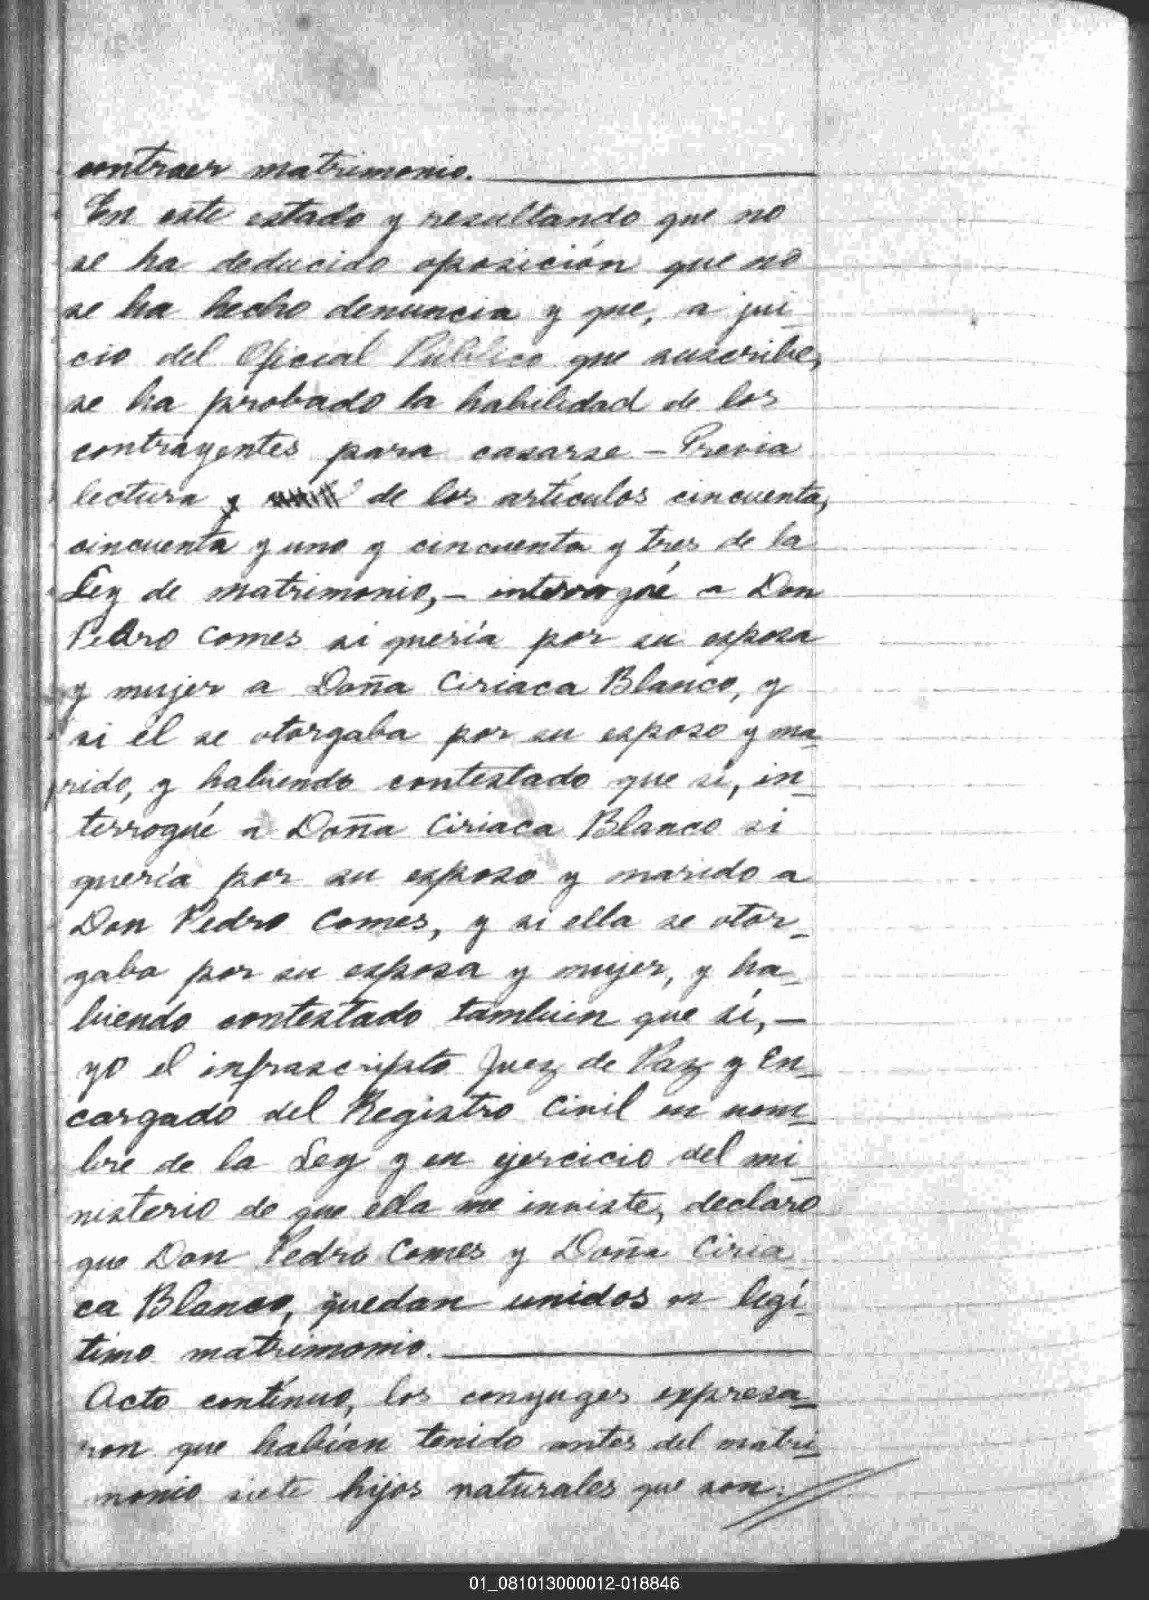 contraer matrimonio.
En este estado y resultando que no
se ha deducido oposición que no
se ha hecho denuncia y que, a jui_
cio del Oficial Público que suscribe,
se ha probado la habilidad de los
contrayentes para casarse - Previa
lectura y de los artículos cincuenta,
cincuenta y uno y cincuenta y tres de la
Ley de matrimonio, - interrogué a Don
Pedro Comes si quería por su esposa
y mujer a Doña Ciriaca Blanco, y
si él se otorgaba por su esposo y ma_
rido, y habiendo contestado que sí, in_
terrogué a Doña Ciriaca Blanco si
quería por su esposo y marido a
Don Pedro Comes, y si ella se otor_
gaba por su esposa y mujer, y ha_
biendo contestado tambien que sí, -
yo el infrascripto Juez de Paz y En_
cargado del Registro Civil en nom_
bre de la Ley y en ejercicio del mi_
nisterio de que ella me inviste, declaro
que Don Pedro Comes y Doña Ciria_
ca Blanco, quedan unidos en legí_
timo matrimonio.
Acto contínuo, los conyuges expresa_
ron que habían tenido antes del matri_
monio siete hijos naturales que son:
01_081013000012-018846